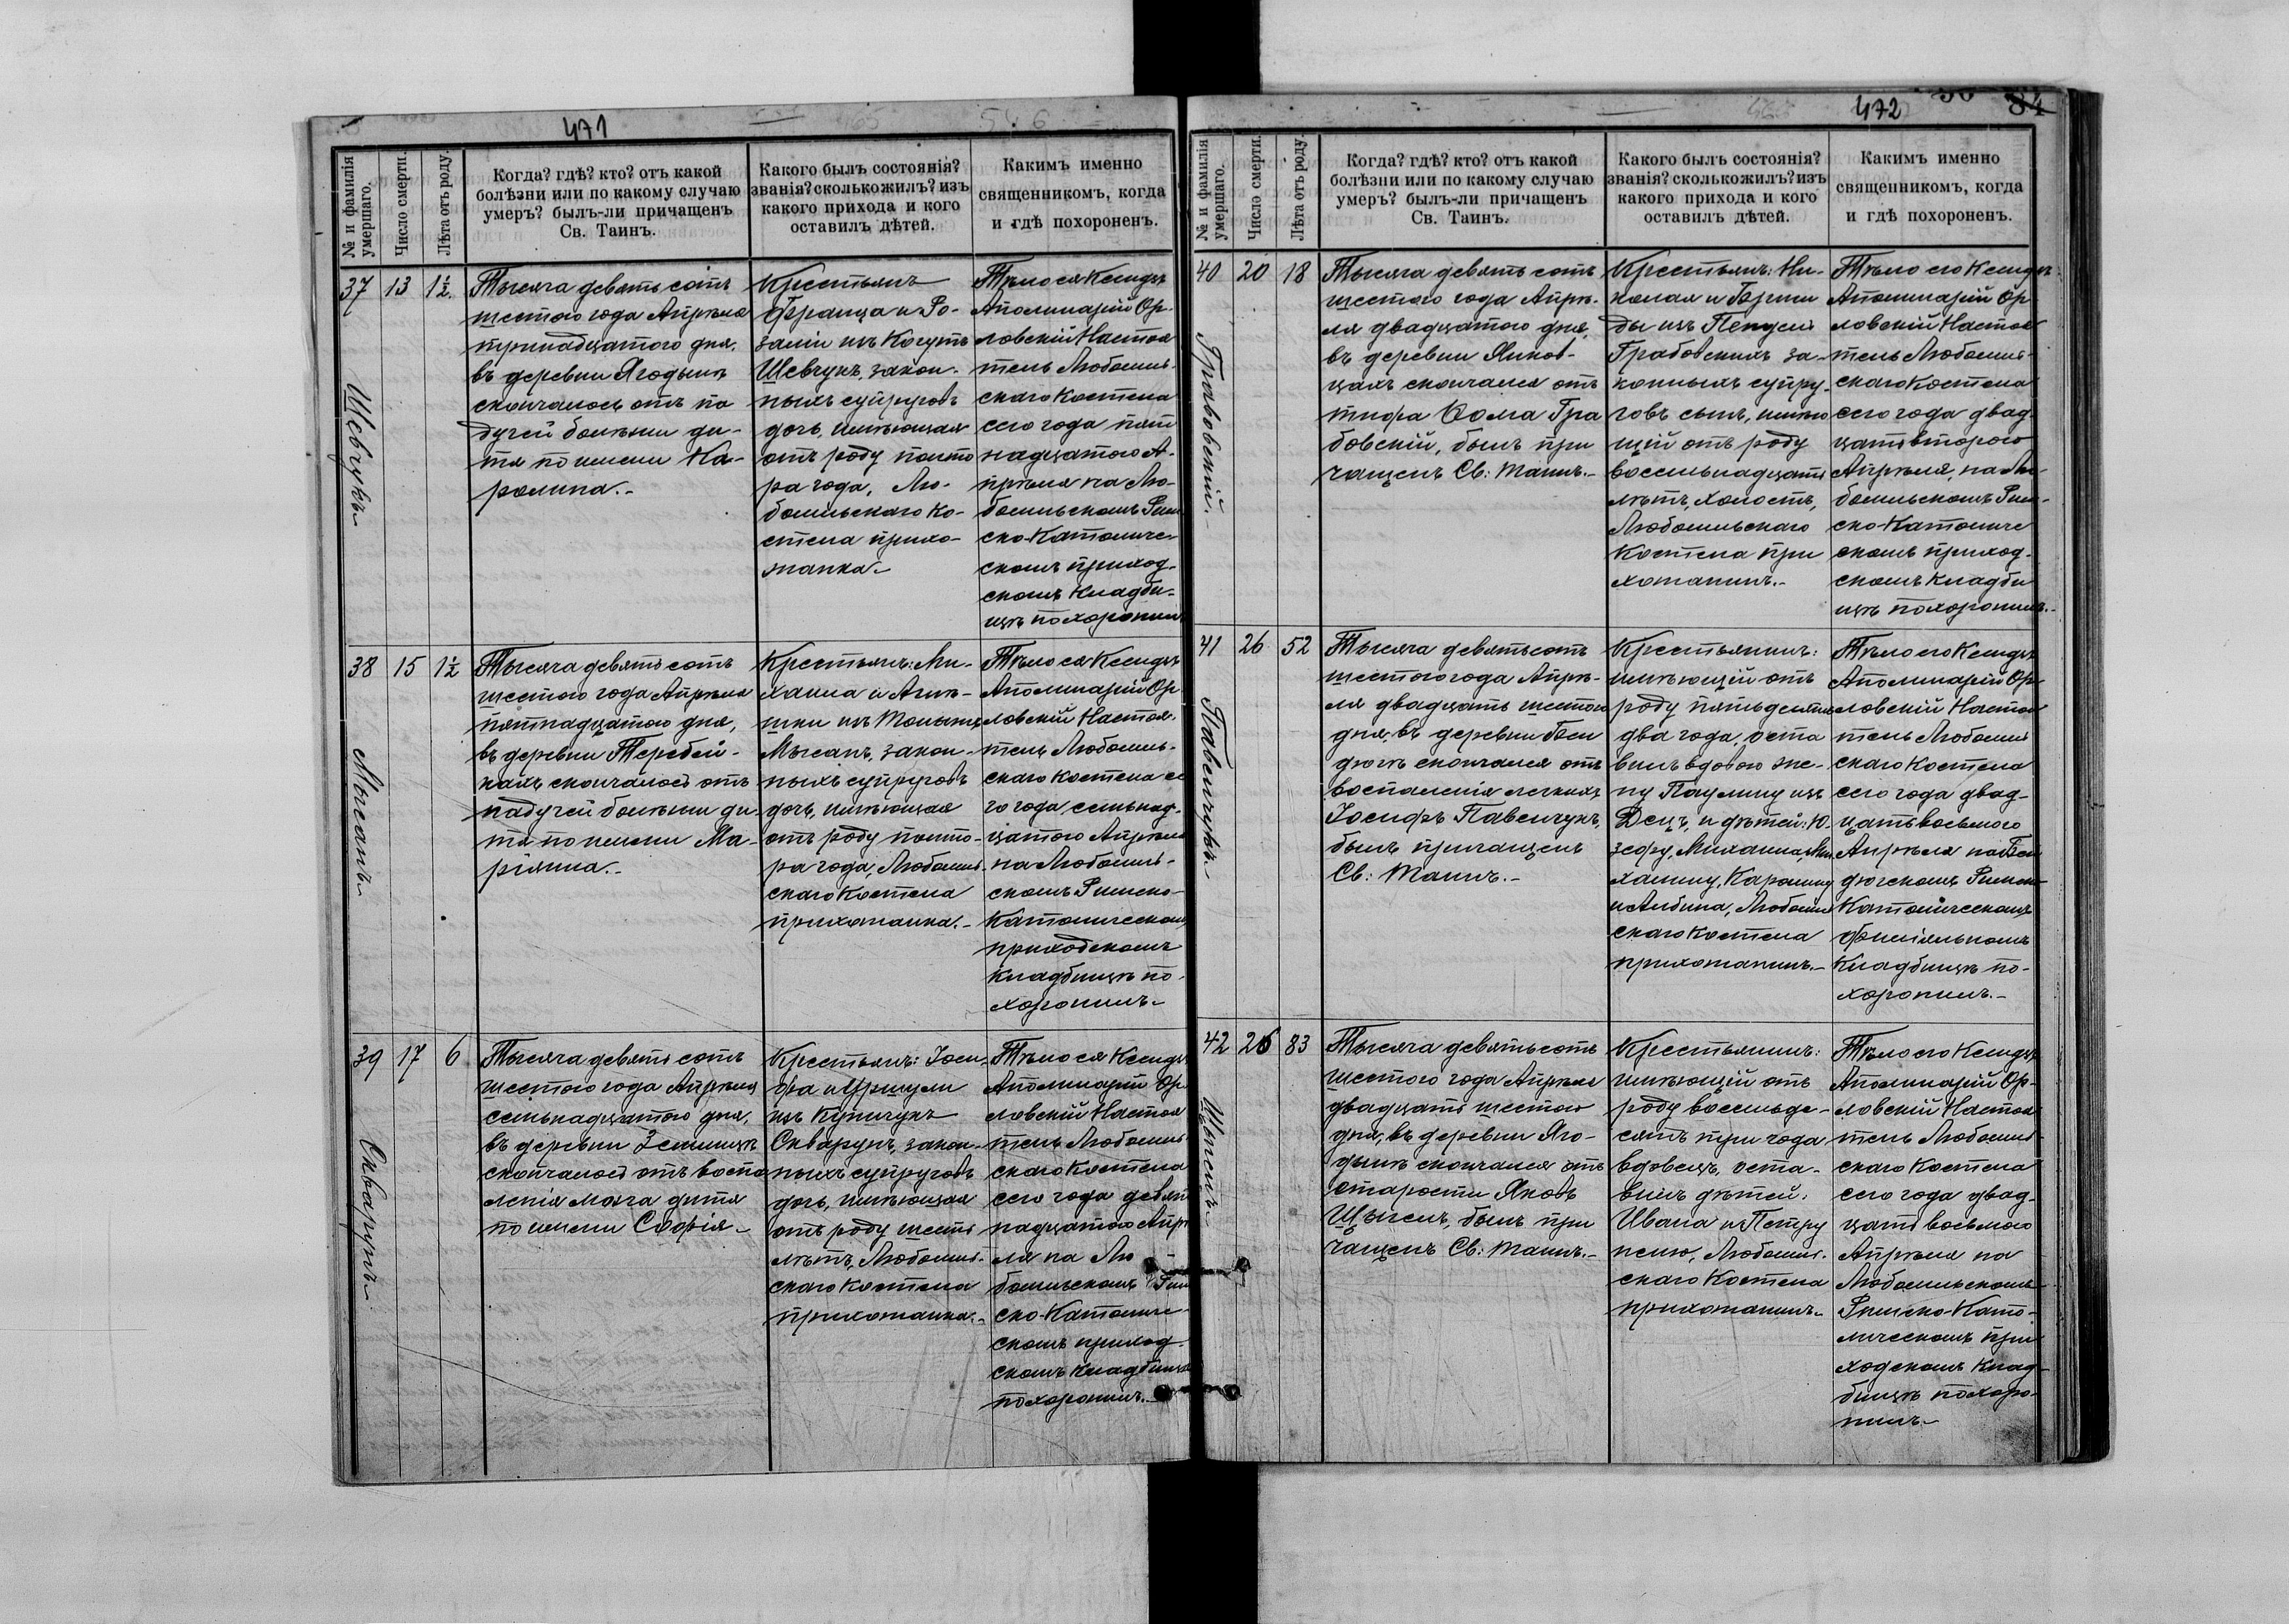 471
№ и фамилія умершаго.
Число смерти.
Лѣта отъ роду.
Когда? гдѣ? кто? отъ какой
болѣзни или по какому случаю
умеръ? былъ-ли причащенъ
Св. Таинъ.
Какого былъ состоянія?
званія? сколько жилъ? изъ
какого прихода и кого
оставилъ дѣтей.
Какимъ именно
священникомъ, когда
и гдѣ похороненъ.
37
Шевчукъ
13
1½
Тысяча девять сотъ
шестого года Апрѣля
тринадцатого дня,
въ деревни Ягодынѣ
скончалось отъ па
дучей болѣзни ди-
тя по имени Ка-
ролина.-
Крестьянъ
Франца и Ро-
заліи изъ Когутъ
Шевчукъ, закон-
ныхъ супруговъ
дочь, имѣющая
отъ роду полто
ра года, Лю-
бомльскаго ко-
стела прихо-
жанка.-
Тѣло ея Ксендзъ
Аполинарій Ор-
ловскій Настоя
тель Любомль-
скаго Костела
сего года пят
надцатого А-
прѣля на Лю-
бомльскомъ Рим
ско-Католиче-
скомъ приход-
скомъ кладби-
щѣ похоронилъ
38
Мысанъ
15
1½
Тысяча девять сотъ
шестого года Апрѣля
пятнадцатого дня,
въ деревни Теребей-
кахъ скончалось отъ
падучей болѣзни ди-
тя по имени Ма-
ріянна.-
Крестьянъ: Ми-
хаила и Агнѣ-
шки изъ
Мысанъ, закон-
ныхъ супруговъ
дочь, имѣющая
отъ роду полто-
ра года, Любомль-
скаго Костела
прихожанка.-
Тѣло ея Ксендзъ
Аполинарій Ор
ловскій Настоя-
тель Любомль-
скаго Костела се
го года, семьнад-
цатого Апрѣля
на Любомль-
скомъ Римско-
Католическомъ
приходскомъ
кладбищѣ по-
хоронилъ.-
39
Скварунъ
17
6
Тысяча девять сотъ
шестого года Апрѣля
семьнадцатого дня,
въ деревни Землицѣ
скончалось отъ воспа
ленія мозга дитя
по имени Софія.-
Крестьянъ: Іоси-
фа и Уршули
изъ Купичукъ
Скварунъ, закон-
ныхъ супруговъ
дочь, имѣющая
отъ роду шесть
лѣтъ, Любомль-
скаго Костела
прихожанка.-
Тѣло ея Ксендзъ
Аполинарій Ор
ловскій Настоя
тель Любомль
скаго Костела
сего года девят
надцатого Апрѣ
ля на Лю
бомльскомъ Рим
ско-Католиче
скомъ приход-
скомъ кладбищѣ
похоронилъ.-
472
84
№ и фамилія умершаго.
Число смерти.
Лѣта отъ роду.
Когда? гдѣ? кто? отъ какой
болѣзни или по какому случаю
умеръ? былъ-ли причащенъ
Св. Таинъ.
Какого былъ состоянія?
званія? сколько жилъ? изъ
какого прихода и кого
оставилъ дѣтей.
Какимъ именно
священникомъ, когда
и гдѣ похороненъ.
40
Грабовскій.
20
18
Тысяча девять сотъ
шестого года Апрѣ-
ля двадцатого дня,
въ деревни Янков-
цахъ скончался отъ
тифа Ѳома Гра
бовскій, былъ при
чащенъ Св: Таинъ.-
Крестьянъ: Ни-
колая и Бригы
ды изъ
Грабовскихъ за-
конныхъ супру-
говъ сынъ, имѣю
щій отъ роду
восемьнадцать
лѣтъ, холостъ,
Любомльскаго
Костела при
хожанинъ.-
Тѣло его Ксендзъ
Аполинарій Ор-
ловскій Настоя
тель Любомль-
скаго Костела
сего года двад-
цать второго
Апрѣля, на Лю-
бомльскомъ Рим-
ско-Католиче
скомъ приход-
скомъ кладби
щѣ похоронилъ.-
41
Павельчукъ
26
52
Тысяча девятьсотъ
шестого года Апрѣ-
ля двадцать шестого
дня, въ деревни Бин
дюгѣ скончался отъ
воспаленія легкихъ
Іосифъ Павельчукъ,
былъ причащенъ
Св: Таинъ.-
Крестьянинъ:
имѣющій отъ
роду пятьдесять
два года, оста
вилъ вдовою же-
ну Паулину изъ
Децъ, и дѣтей: Ю-
зефу, Михаила, Ми
халину, Каролину
и Альбина, Любомль
скаго Костела
прихожанинъ.-
Тѣло его Ксендзъ
Аполинарій Ор-
ловскій Настоя
тель Любомль
скаго Костела
сего года двад-
цать восьмого
Апрѣля на Бин
дюгскомъ Римско-
Католическомъ
филіяльномъ
Кладбищѣ по-
хоронилъ.-
42
26
83
Тысяча девятьсотъ
шестого года Апрѣля
двадцать шестого
дня, въ деревни Яго-
дынѣ скончался отъ
старости Яковъ
былъ при
чащенъ Св: Таинъ.-
Крестьянинъ:
имѣющій отъ
роду восемьде-
сятъ три года
вдовецъ, оста-
вилъ дѣтей:
Ивана и Петру
нелю, Любомль-
скаго Костела
прихожанинъ.-
Тѣло его Ксендзъ
Аполинарій Ор-
ловскій Настоя
тель Любомль-
скаго Костела
сего года двад-
цать восьмого
Апрѣля на
Любомльскомъ
Римско-Като-
лическомъ при
ходскомъ клад-
бищѣ похоро-
нилъ.-